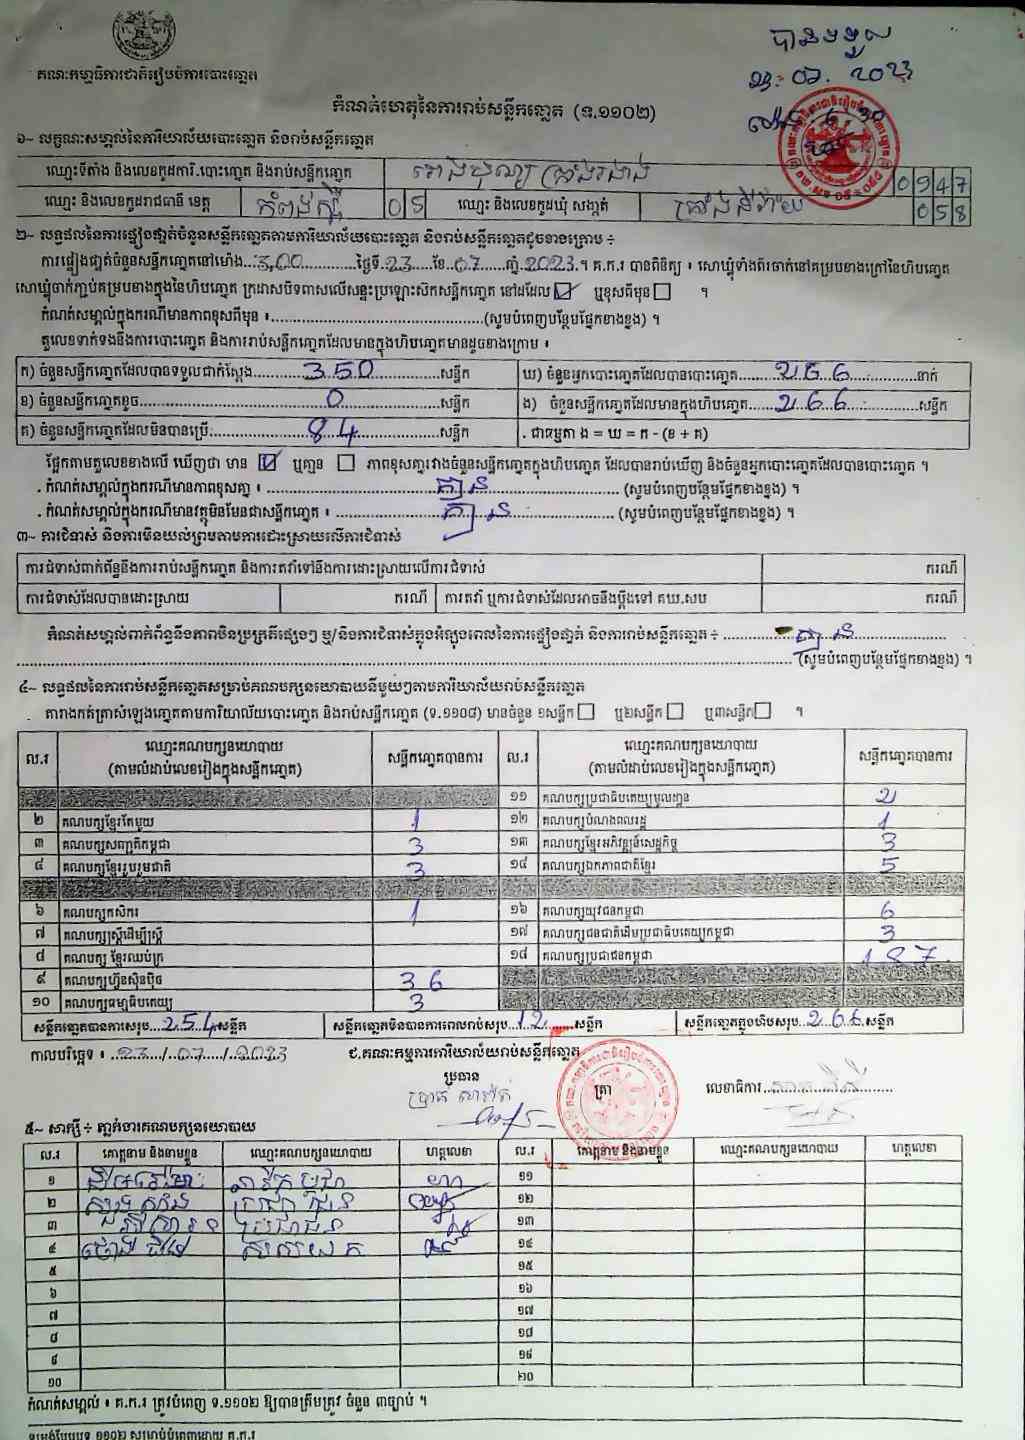 បានទទួល
23. 07. 2023
គណៈកម្មាធិការជាតិរៀបចំការបោះឆ្នោត
កំណត់ហេតុនៃការរាប់សន្លឹកឆ្នោត (ទ.១១០២)
១~ លក្ខណៈសម្គាល់នៃការិយាល័យបោះឆ្នោត និងរាប់សន្លឹកឆ្នោត
ឈ្មោះទីតាំង និងលេខកូដការិ.បោះឆ្នោត និងរាប់សន្លឹកឆ្នោត 0947
ឈ្មោះ និងលេខកូដរាជធានី ខេត្ត កំពង់ស្ពឺ 05 ឈ្មោះ និងលេខកូដឃុំ សង្កាត់ 058
២~ លទ្ធផលនៃការផ្ទៀងផ្ទាត់ចំនួនសន្លឹកឆ្នោតតាមការិយាល័យបោះឆ្នោត និងរាប់សន្លឹកឆ្នោតដូចខាងក្រោម ÷
ការផ្ទៀងផ្ទាត់ចំនួនសន្លឹកឆ្នោតនៅម៉ោង 3:00 ថ្ងៃទី 23 ខែ 07 ឆ្នាំ 2023 ។ គ.ក.រ បានពិនិត្យ ៖ សោឃ្លុំទាំងពីរចាក់នៅគម្របខាងក្រៅនៃហិបឆ្នោត
សោឃ្លុំចាក់ភ្ជាប់គម្របខាងក្នុងនៃហិបឆ្នោត ក្រដាសបិទពាសលើសន្ទះប្រឡោះស៊កសន្លឹកឆ្នោត នៅដដែល ☑ ឬខុសពីមុន ☐ ។
កំណត់សម្គាល់ក្នុងករណីមានភាពខុសពីមុន ៖ (សូមបំពេញបន្ថែមផ្នែកខាងខ្នង) ។
តួលេខទាក់ទងនឹងការបោះឆ្នោត និងការរាប់សន្លឹកឆ្នោតដែលមានក្នុងហិបឆ្នោតមានដូចខាងក្រោម ៖
ក) ចំនួនសន្លឹកឆ្នោតដែលបានទទួលជាក់ស្តែង 350 សន្លឹក ឃ) ចំនួនអ្នកបោះឆ្នោតដែលបានបោះឆ្នោត 266 នាក់
ខ) ចំនួនសន្លឹកឆ្នោតខូច 0 សន្លឹក ង) ចំនួនសន្លឹកឆ្នោតដែលមានក្នុងហិបឆ្នោត 266 សន្លឹក
គ) ចំនួនសន្លឹកឆ្នោតដែលមិនបានប្រើ 84 សន្លឹក . ជាធម្មតា ង = ឃ = ក - (ខ + គ)
ផ្អែកតាមតួលេខខាងលើ ឃើញថា មាន ☑ ឬគ្មាន ☐ ភាពខុសគ្នារវាងចំនួនសន្លឹកឆ្នោតក្នុងហិបឆ្នោត ដែលបានរាប់ឃើញ និងចំនួនអ្នកបោះឆ្នោតដែលបានបោះឆ្នោត ។
. កំណត់សម្គាល់ក្នុងករណីមានភាពខុសគ្នា ៖ គ្មាន (សូមបំពេញបន្ថែមផ្នែកខាងខ្នង) ។
. កំណត់សម្គាល់ក្នុងករណីមានវត្ថុមិនមែនជាសន្លឹកឆ្នោត ៖ គ្មាន (សូមបំពេញបន្ថែមផ្នែកខាងខ្នង) ។
៣~ ការជំទាស់ និងការមិនយល់ព្រមតាមការដោះស្រាយលើការជំទាស់
ការជំទាស់ពាក់ព័ន្ធនឹងការរាប់សន្លឹកឆ្នោត និងការតវ៉ាទៅនឹងការដោះស្រាយលើការជំទាស់ ករណី
ការជំទាស់ដែលបានដោះស្រាយ ករណី ការតវ៉ា ឬការជំទាស់ដែលអាចនឹងប្តឹងទៅ គឃ.សប ករណី
កំណត់សម្គាល់ពាក់ព័ន្ធនឹងភាពមិនប្រក្រតីផ្សេងៗ ឬ/និងការជំទាស់ក្នុងអំឡុងពេលនៃការផ្ទៀងផ្ទាត់ និងការរាប់សន្លឹកឆ្នោត ÷ គ្មាន
(សូមបំពេញបន្ថែមផ្នែកខាងខ្នង) ។
៤~ លទ្ធផលនៃការរាប់សន្លឹកឆ្នោតសម្រាប់គណបក្សនយោបាយនីមួយៗតាមការិយាល័យរាប់សន្លឹកឆ្នោត
តារាងកត់ត្រាសំឡេងឆ្នោតតាមការិយាល័យបោះឆ្នោត និងរាប់សន្លឹកឆ្នោត (ទ.១១០៨) មានចំនួន ១សន្លឹក ☐ ឬ២សន្លឹក ☐ ឬ៣សន្លឹក ☐ ។
ល.រ ឈ្មោះគណបក្សនយោបាយ (តាមលំដាប់លេខរៀងក្នុងសន្លឹកឆ្នោត) សន្លឹកឆ្នោតបានការ ល.រ ឈ្មោះគណបក្សនយោបាយ (តាមលំដាប់លេខរៀងក្នុងសន្លឹកឆ្នោត) សន្លឹកឆ្នោតបានការ
១១ គណបក្សប្រជាធិបតេយ្យមូលដ្ឋាន 2
២ គណបក្សខ្មែរតែមួយ 1 ១២ គណបក្សបំណងពលរដ្ឋ 1
៣ គណបក្សសញ្ជាតិកម្ពុជា 3 ១៣ គណបក្សខ្មែរអភិវឌ្ឍន៍សេដ្ឋកិច្ច 3
៤ គណបក្សខ្មែររួបរួមជាតិ 3 ១៤ គណបក្សឯកភាពជាតិខ្មែរ 5
៦ គណបក្សកសិករ 1 ១៦ គណបក្សយុវជនកម្ពុជា 6
៧ គណបក្សស្ត្រីដើម្បីស្ត្រី ១៧ គណបក្សជនជាតិដើមប្រជាធិបតេយ្យកម្ពុជា 3
៨ គណបក្ស ខ្មែរឈប់ក្រ ១៨ គណបក្សប្រជាជនកម្ពុជា 187
៩ គណបក្សហ៊្វុនស៊ិនប៉ិច 36
១០ គណបក្សធម្មាធិបតេយ្យ 3
សន្លឹកឆ្នោតបានការសរុប 254 សន្លឹក សន្លឹកឆ្នោតមិនបានការពេលរាប់សរុប 12 សន្លឹក សន្លឹកឆ្នោតក្នុងហិបសរុប 266 សន្លឹក
កាលបរិច្ឆេទ ៖ 23/07/2023 ជ.គណៈកម្មការការិយាល័យរាប់សន្លឹកឆ្នោត
ប្រធាន ត្រា លេខាធិការ
៥~ សាក្សី ÷ ភ្នាក់ងារគណបក្សនយោបាយ
ល.រ គោត្តនាម និងនាមខ្លួន ឈ្មោះគណបក្សនយោបាយ ហត្ថលេខា ល.រ គោត្តនាម និងនាមខ្លួន ឈ្មោះគណបក្សនយោបាយ ហត្ថលេខា
១ ១១
២ ប្រជាជន ១២
៣ ប្រជាជន ១៣
៤ ១៤
៥ ១៥
៦ ១៦
៧ ១៧
៨ ១៨
៩ ១៩
១០ ២០
កំណត់សម្គាល់ ៖ គ.ក.រ ត្រូវបំពេញ ទ.១១០២ ឱ្យបានត្រឹមត្រូវ ចំនួន ៣ច្បាប់ ។
ទម្រង់បែបបទ ១១០២ សម្រាប់បំពេញដោយ គ.ក.រ